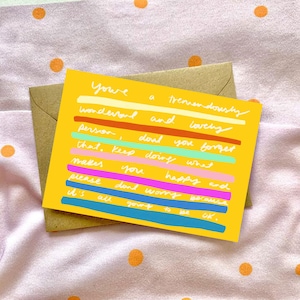 You're a tremendously
wonderful and lovely
person, don't you forget
that. Keep doing what
makes you happy and
please don't worry because
it's all going to be ok.